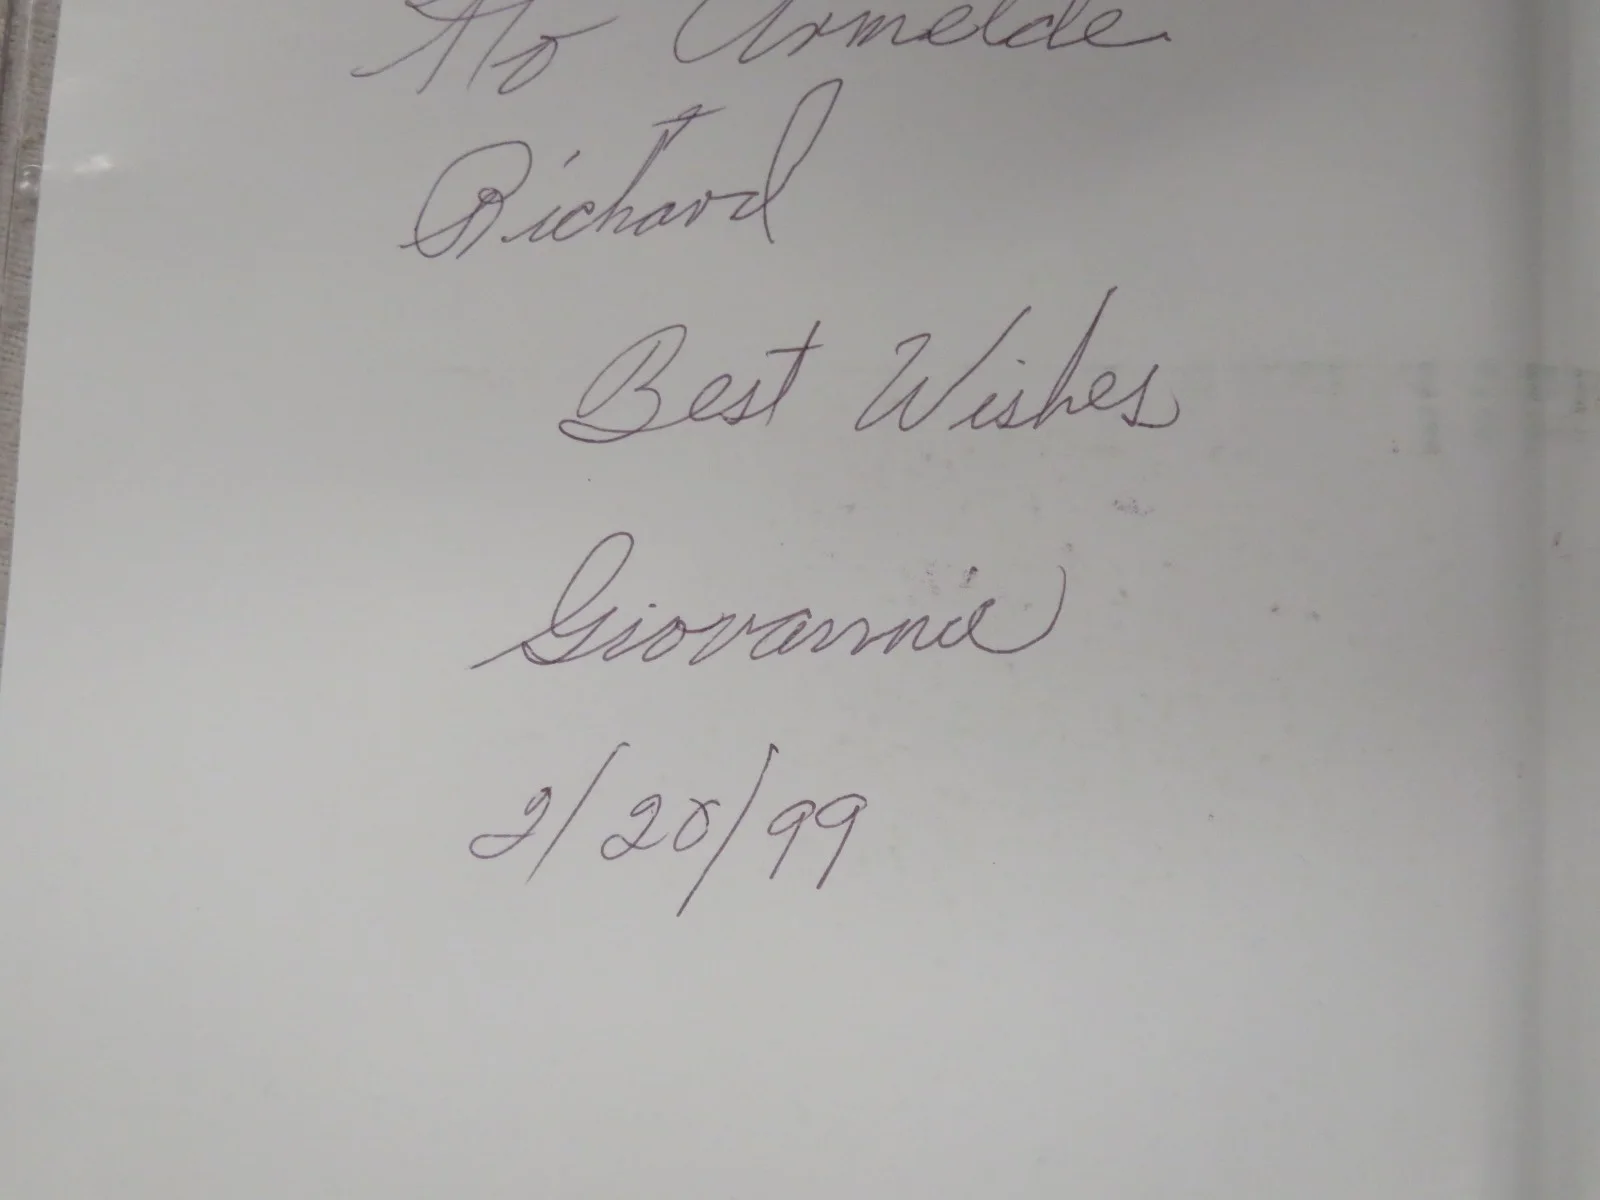 To Armelde
Richard
Best Wishes
Giovannie
2/20/99